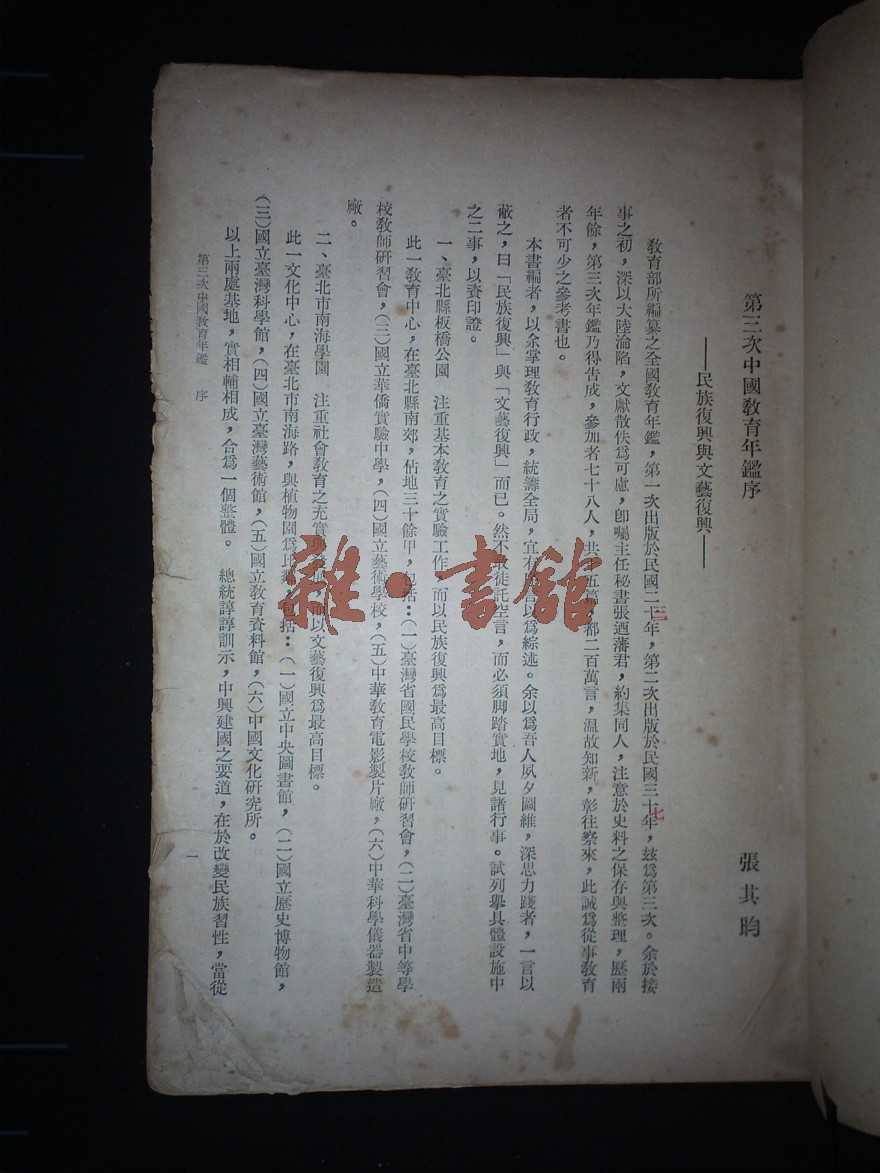 第三次中國教育年鑑序
——民族復興與文藝復興——
張其昀
教育部所編纂之全國教育年鑑，第一次出版於民國二十三年，第二次出版於民國三十七年，玆為第三次。余於接
事之初，深以大陸淪陷，文獻散佚為可慮，卽囑主任秘書張迺藩君，約集同人，注意於史料之保存與整理，歷兩
年餘，第三次年鑑乃得告成，參加者七十八人，共十五篇，都二百萬言，溫故知新，彰往察來，此誠為從事教育
者不可少之參考書也。
本書編者，以余掌理教育行政，統籌全局，宜有以為綜述。余以為吾人夙夕圖維，深思力踐者，一言以
蔽之，曰「民族復興」與「文藝復興」而已。然不敢徒託空言，而必須脚踏實地，見諸行事。試列舉具體設施中
之二事，以資印證。
一、臺北縣板橋公園　注重基本教育之實驗工作，而以民族復興為最高目標。
此一教育中心，在臺北縣南郊，佔地三十餘甲，包括：（一）臺灣省國民學校教師研習會，（二）臺灣省中等學
校教師研習會，（三）國立華僑實驗中學，（四）國立藝術學校，（五）中華教育電影製片廠，（六）中華科學儀器製造
廠。
二、臺北市南海學園　注重社會教育之充實，而以文藝復興為最高目標。
此一文化中心，在臺北市南海路，與植物園為比，包括：（一）國立中央圖書館，（二）國立歷史博物館，
（三）國立臺灣科學館，（四）國立臺灣藝術館，（五）國立教育資料館，（六）中國文化研究所。
以上兩處基地，實相輔相成，合為一個整體。　總統諄諄訓示，中興建國之要道，在於改變民族習性，當從
第三次中國教育年鑑　序
一
雜·書館